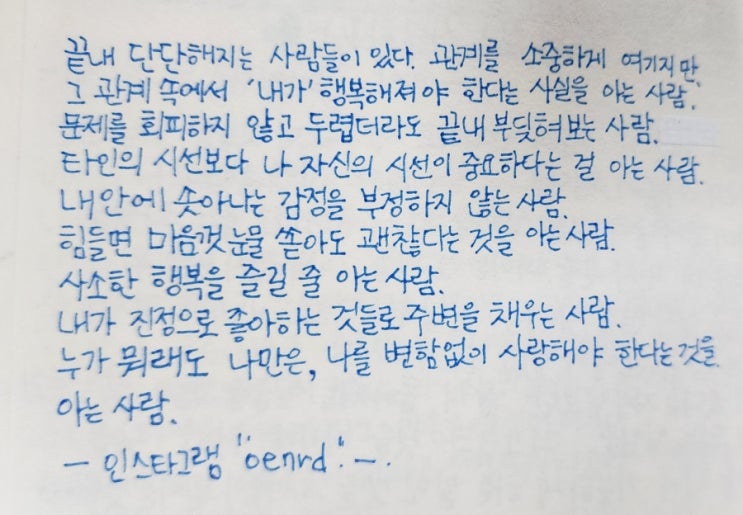 끝내 단단해지는 사람들이 있다. 관계를 소중하게 여기지만,
그 관계 속에서 '내가' 행복해져야 한다는 사실을 아는 사람.
문제를 회피하지 않고 두렵더라도 끝내 부딪혀보는 사람.
타인의 시선보다 나 자신의 시선이 중요하다는 걸 아는 사람.
내 안에 솟아나는 감정을 부정하지 않는 사람.
힘들면 마음껏 눈물 쏟아도 괜찮다는 것을 아는 사람.
사소한 행복을 즐길 줄 아는 사람.
내가 진정으로 좋아하는 것들로 주변을 채우는 사람.
누가 뭐래도 나만은, 나를 변함없이 사랑해야 한다는 것을
아는 사람.
- 인스타그램 "oenrd". -.